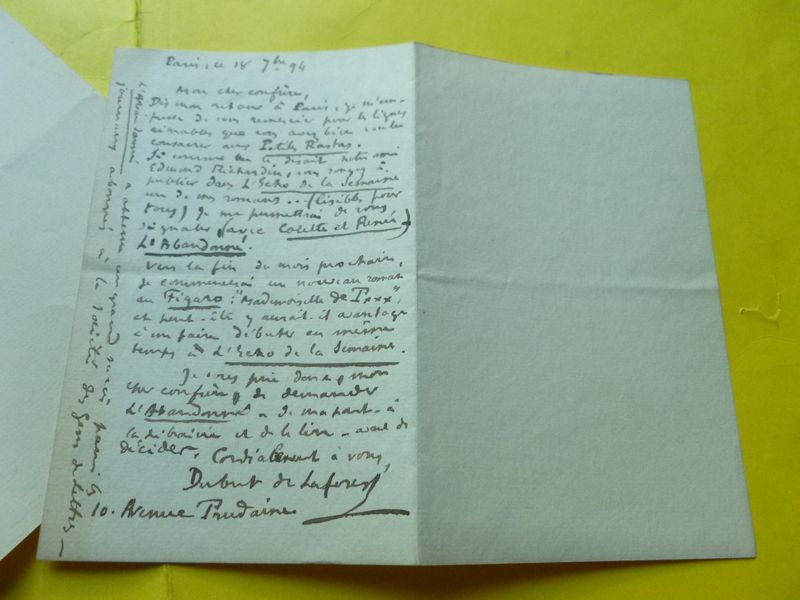 Paris, ce 18 7bre 94
Mon cher confrère,
Dès mon retour à Paris, je m'em-
presse de vous remercier pour les lignes
aimables que vous avez bien voulu
consacrer aux Petits Rastas.
Si comme me le disait notre ami
Edmond Richardin, vous songez à
publier dans L'Echo de la Semaine
un de mes romans ... (lisibles pour
tous) je me permettrai de vous
signaler (avec Colette et Renée)
L'Abandonné.
Vers la fin du mois prochain,
je commencerai un nouveau roman
au Figaro : "Mademoiselle de Txxx",
et peut-être y aurait-il avantage
à me faire débuter en même
temps à L'Echo de la Semaine.
Je vous prie donc, mon
cher confrère, de demander
L'Abandonné - de ma part - à
la librairie et de le lire - avant de
décider. Cordialement à vous,
Dubut de Laforest
10. Avenue Trudaine
L'Abandonné a obtenu un grand succès parmi les
journaux abonnés à la Société des Gens de Lettres -